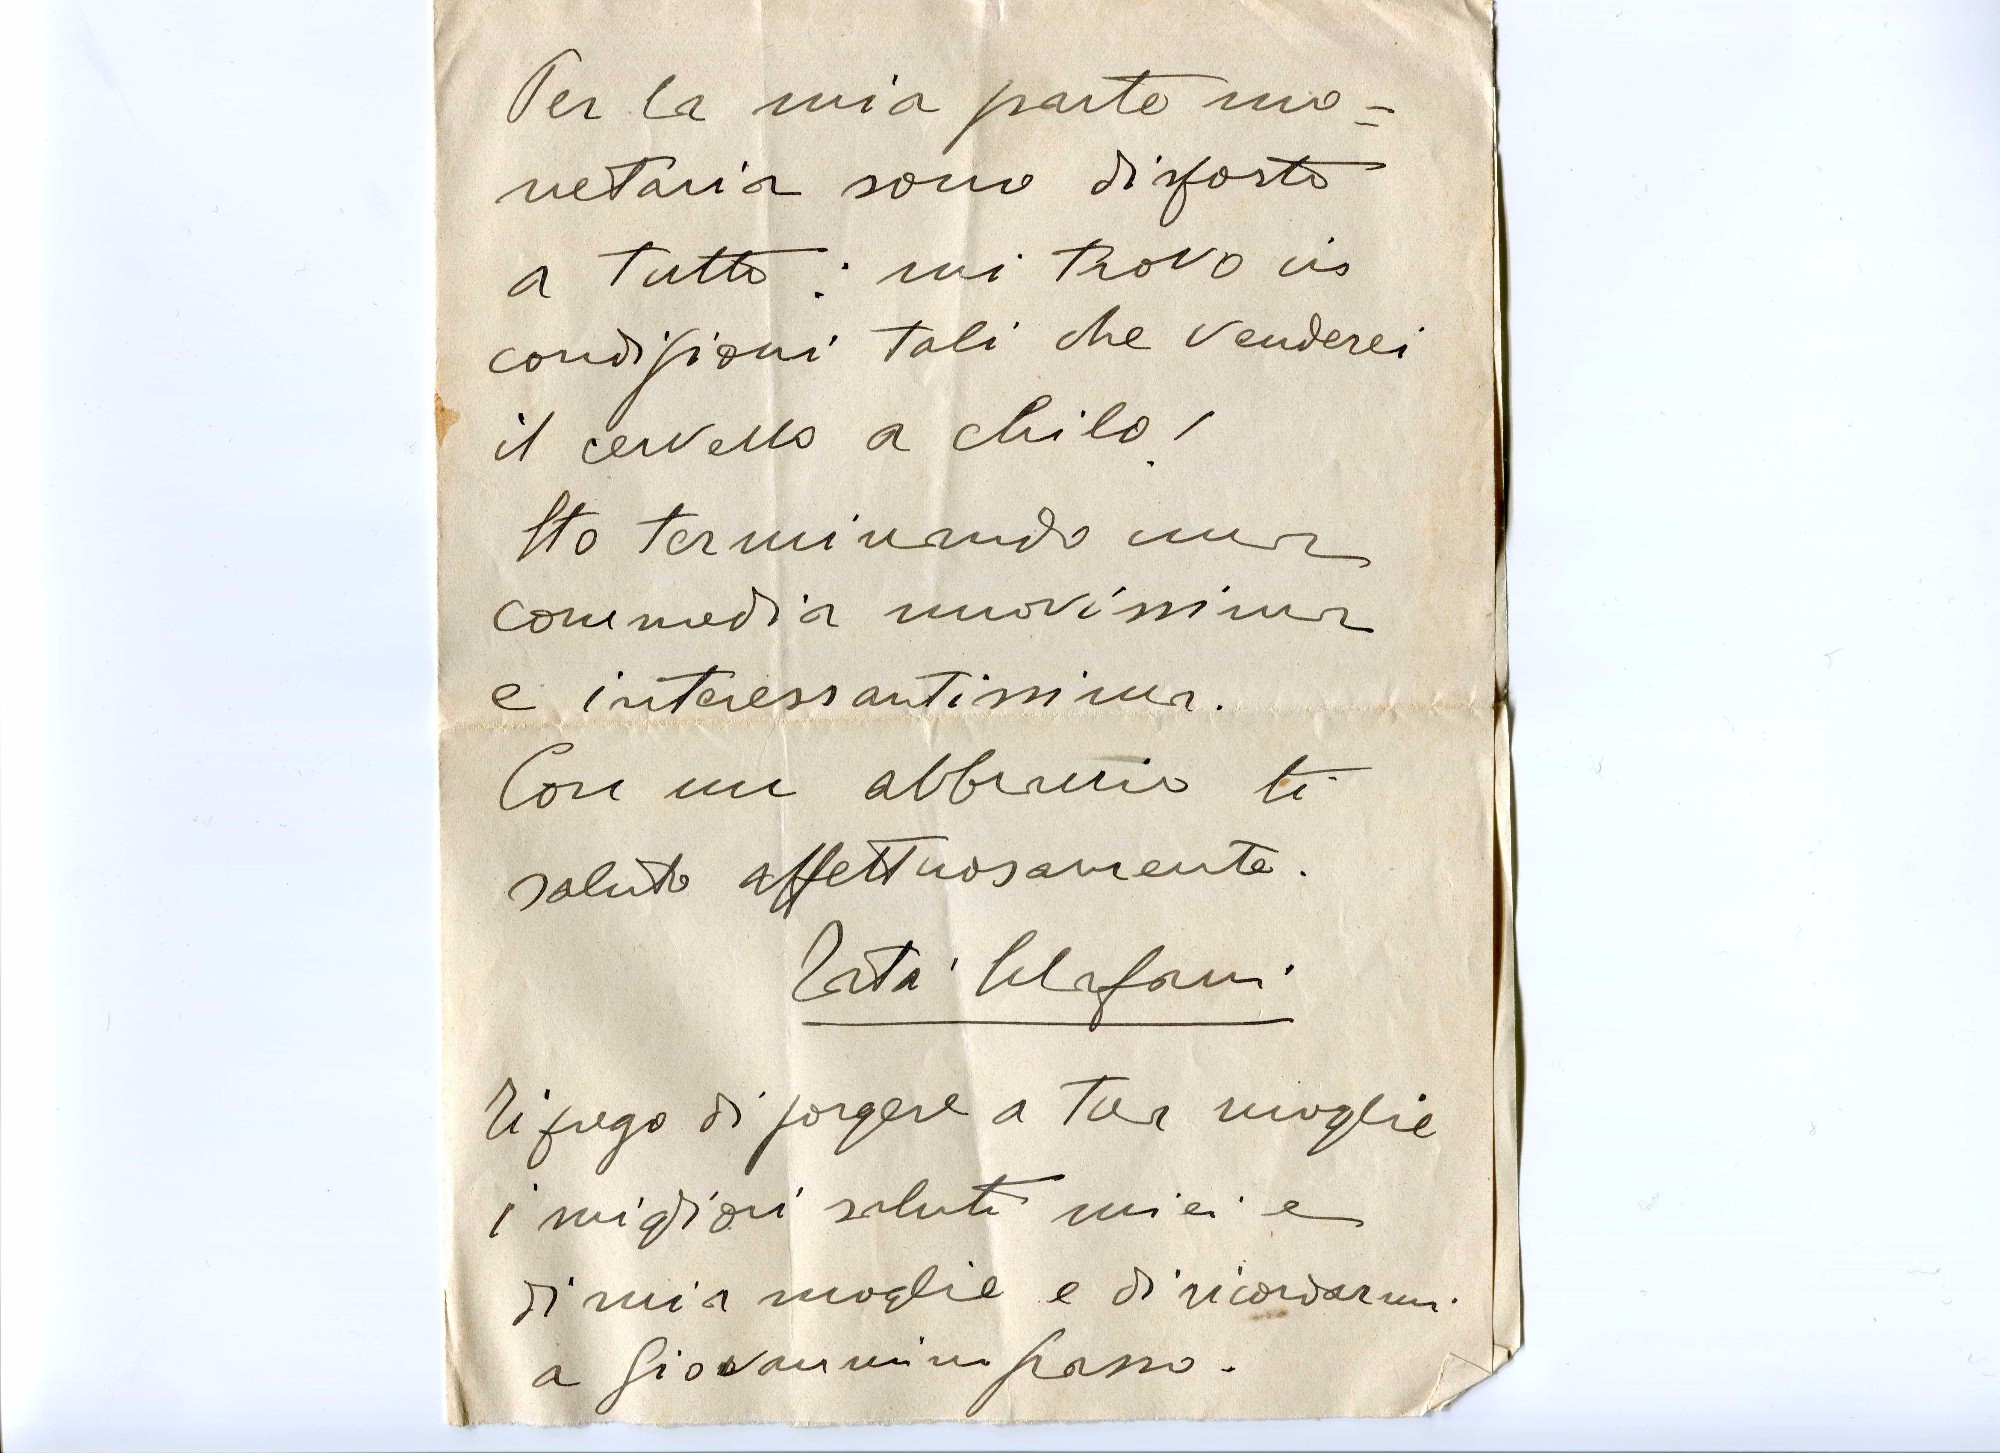 Per la mia parte mo=
netaria sono disposto
a tutto: mi trovo in
condizioni tali che venderei
il cervello a chilo!
Sto terminando una
commedia nuovissima
e interessantissima.
Con un abbraccio ti
saluto affettuosamente.
Tatà Sclafani
Ti prego di porgere a tua moglie
i migliori saluti miei e
di mia moglie e di ricordarmi
a Giovannino Grasso.